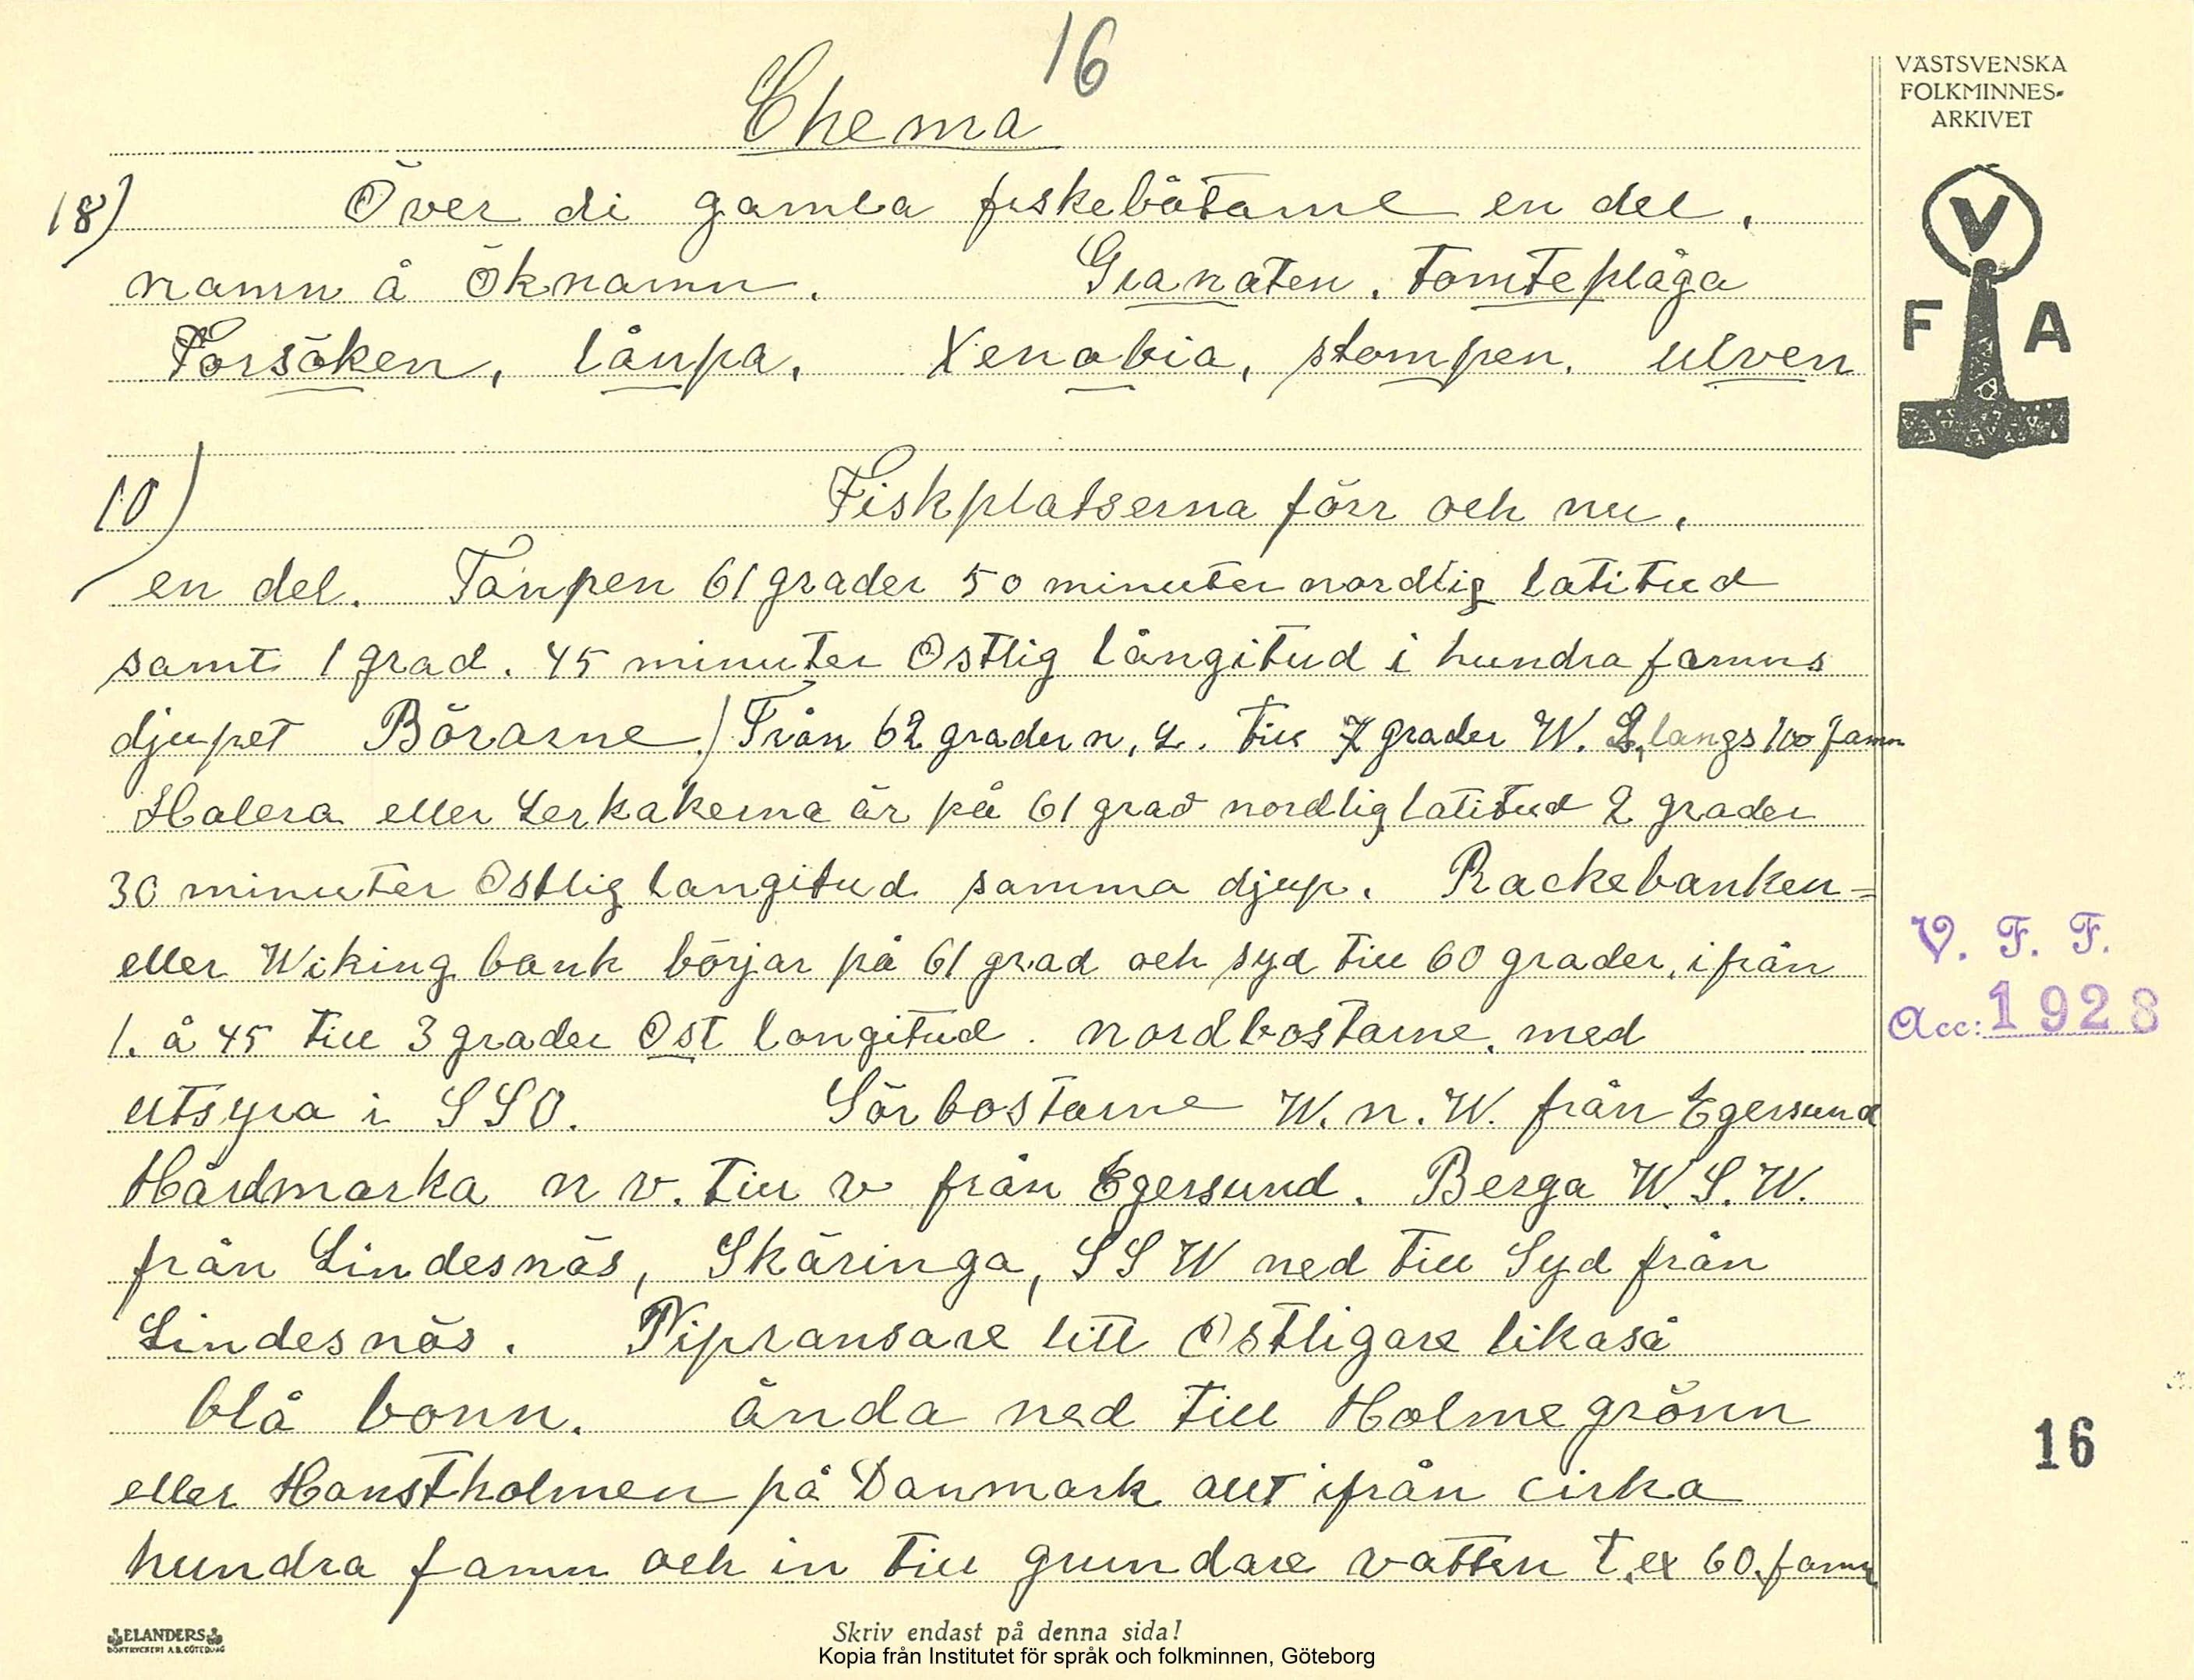 16
Chema
VÄSTSVENSKA
FOLKMINNES-
ARKIVET
V
F A
18) Över di gamla fiskebåtarne en del.
namn å öknamn. Granaten. tomteplåga
Forsöken, lånpa. Xenobia, stompen. ulven
10) Fiskplatserna förr och nu.
en del. Tånpen 61 grader 50 minuter nordlig latitud
samt 1 grad. 45 minuter Ostlig långitud i hundra famns
djupet Börarne.) Från 62 grader n, L. till 7 grader W. L, langs 100 famn
Halera eller Lerkakerna är på 61 grad nordlig latitud 2 grader
30 minuter Ostlig langitud samma djup. Rackebanken=
eller Wiking bank börjar på 61 grad och syd till 60 grader, ifrån
1. å 45 till 3 grader Ost longitud. nordbostarne. med
utsyra i SSO. Sörbostarne W. n. W. från Egersund
Hårdmarka n v. till v från Egersund. Berga W. S. W.
från Lindesnäs, Skäringa, SSW ned till Syd från
Lindesnäs. Pipransare litt Ostligare likaså
blå bonn. ända ned till Holmegrönn
eller Hanstholmen på Danmark allt ifrån cirka
hundra famn och in till grundare vatten t.ex 60. famn
V. F. F.
Acc: 1928
16
ELANDERS
BOKTRYCKERI A.B. GÖTEBORG
Skriv endast på denna sida!
Kopia från Institutet för språk och folkminnen, Göteborg